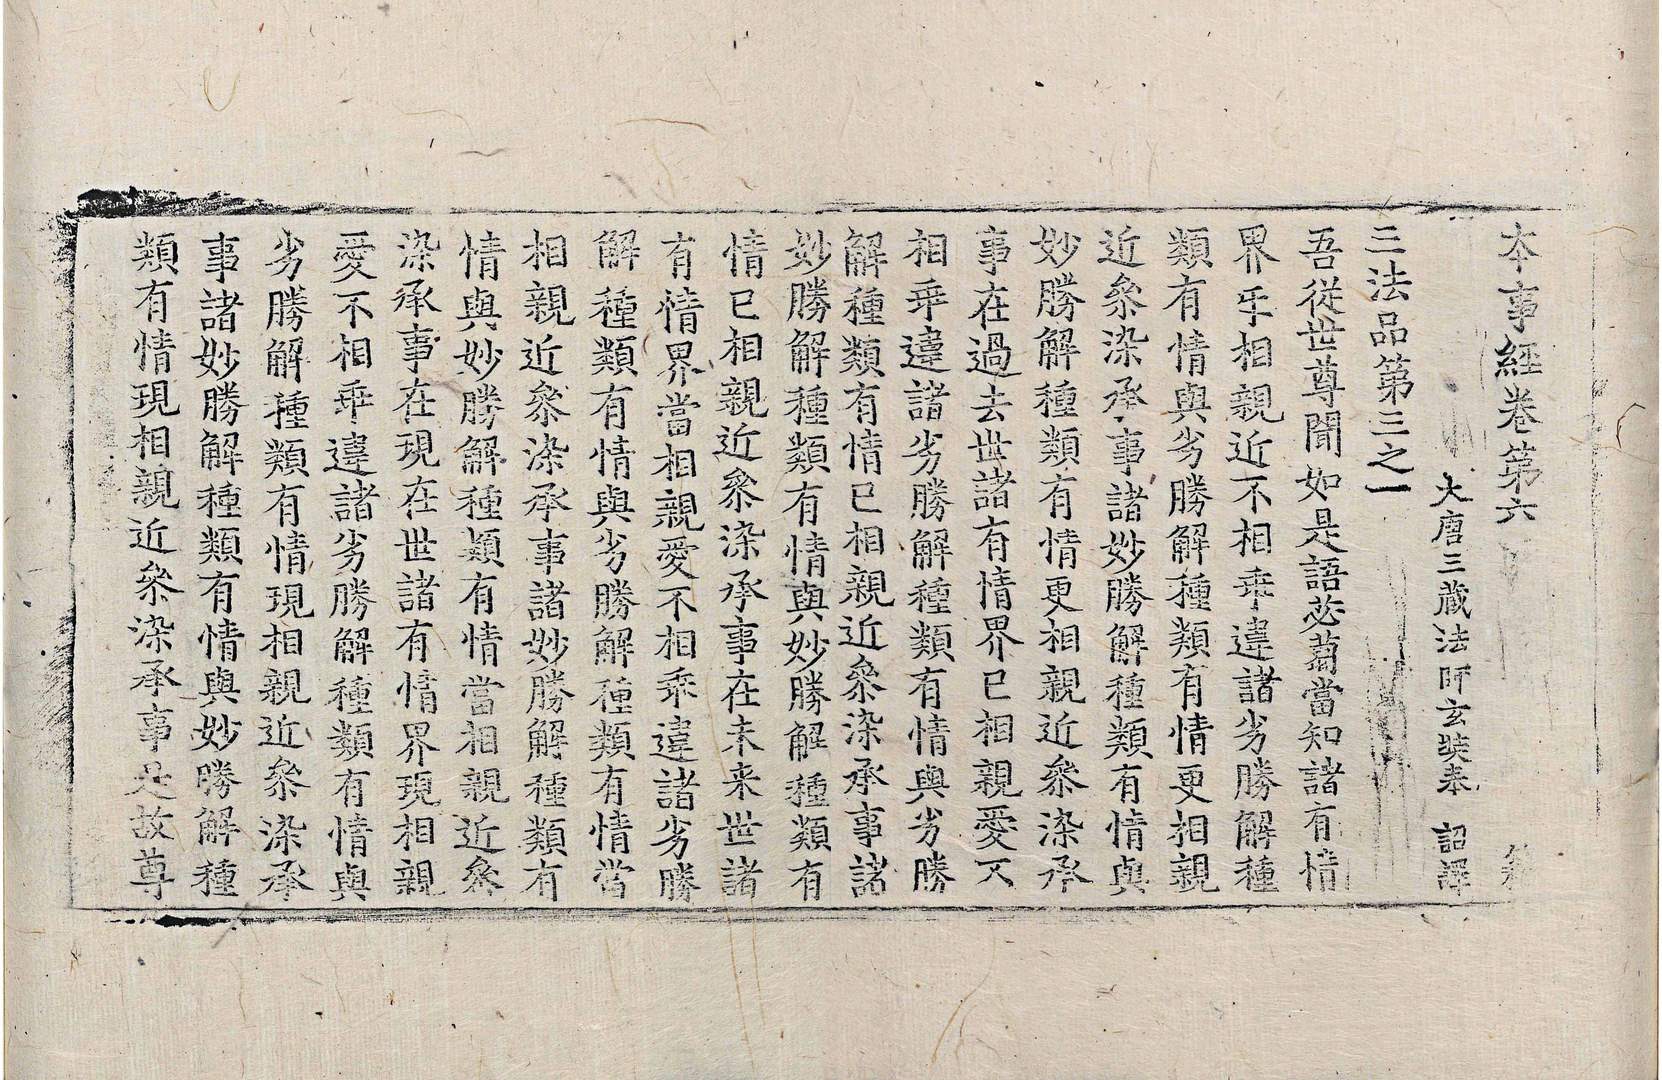 本事經卷第六
大唐三藏法師玄奘奉 詔譯
三法品第三之一
吾從世尊聞如是語苾蒭當知諸有情
界互相親近不相乖違諸劣勝解種
類有情與劣勝解種類有情更相親
近叅染承事諸妙勝解種類有情與
妙勝解種類有情更相親近叅染承
事在過去世諸有情界已相親愛不
相乖違諸劣勝解種類有情與劣勝
解種類有情已相親近叅染承事諸
妙勝解種類有情與妙勝解種類有
情已相親近叅染承事在未来世諸
有情界當相親愛不相乖違諸劣勝
解種類有情與劣勝解種類有情當
相親近叅染承事諸妙勝解種類有
情與妙勝解種類有情當相親近叅
染承事在現在世諸有情界現相親
愛不相乖違諸劣勝解種類有情與
劣勝解種類有情現相親近叅染承
事諸妙勝解種類有情與妙勝解種
類有情現相親近叅染承事是故尊